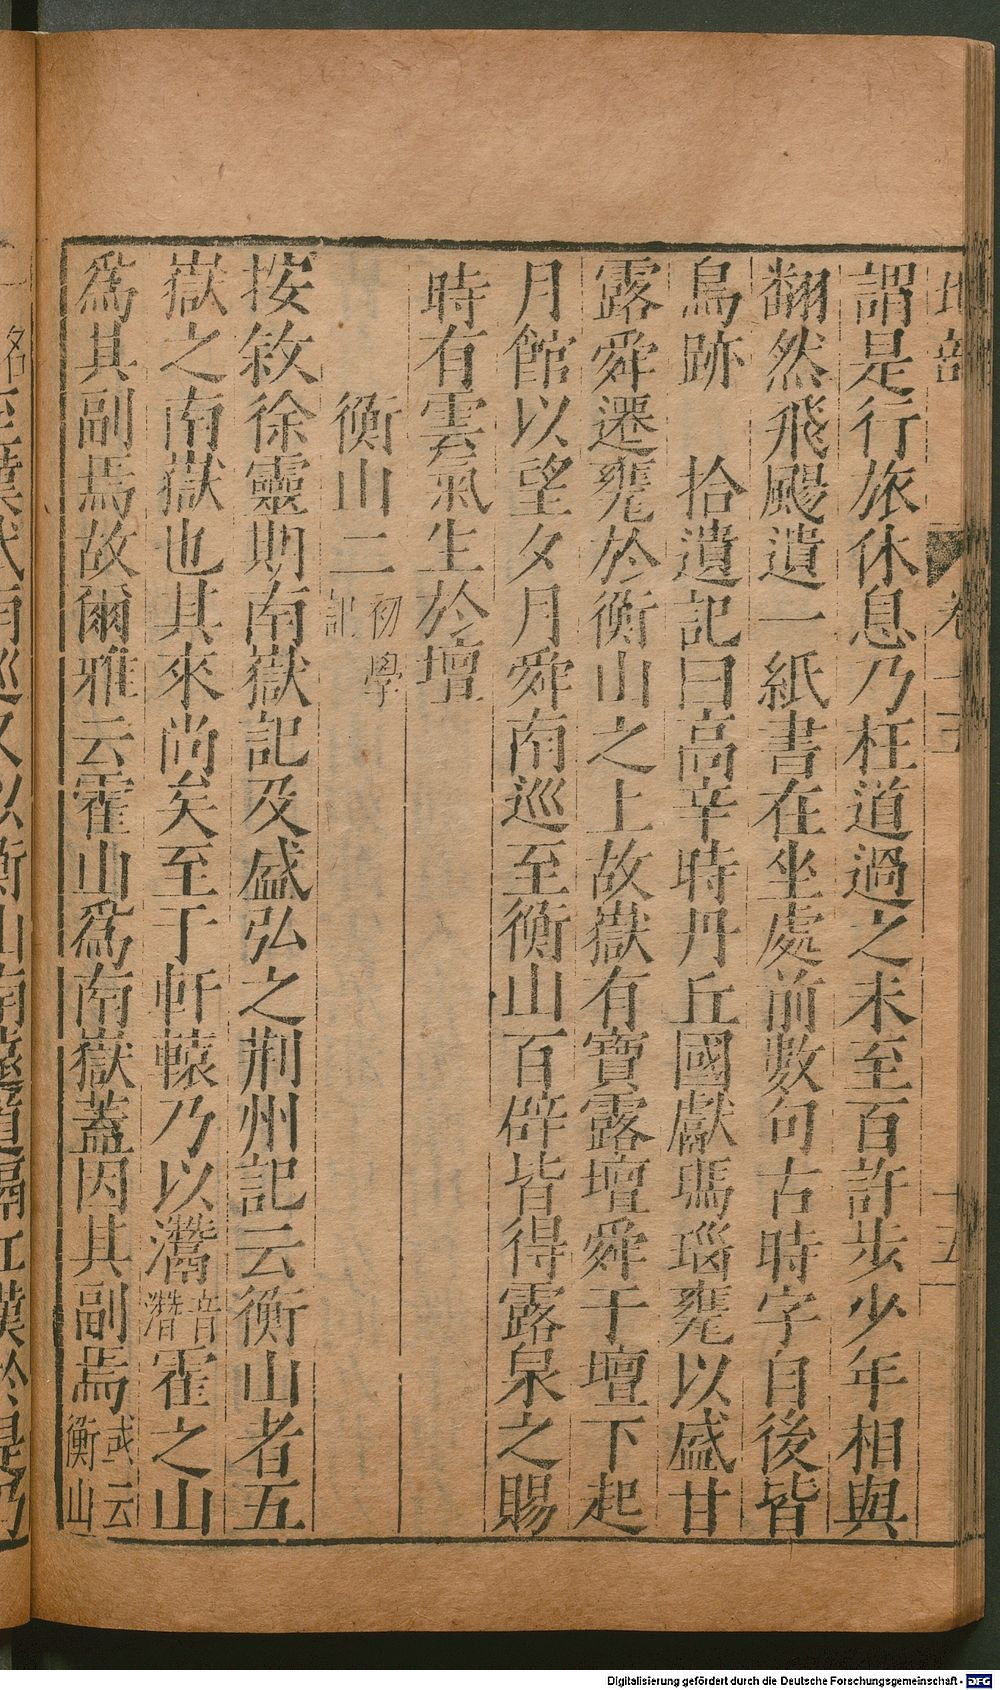 地部 卷十五
謂是行旅休息乃枉道過之未至百許步少年相與
翻然飛颺遺一紙書在坐處前數句古時字自後皆
鳥跡　拾遺記曰高辛時丹丘國獻瑪瑙甕以盛甘
露舜遷甕於衡山之上故嶽有寶露壇舜于壇下起
月館以望夕月舜南巡至衡山百辟皆得露泉之賜
時有雲氣生於壇
衡山二 初學記
按敘徐靈期南嶽記及盛弘之荆州記云衡山者五
嶽之南嶽也其來尚矣至于軒轅乃以灊 音潛 霍之山
爲其副焉故爾雅云霍山爲南嶽蓋因其副焉 或云衡山
Digitalisierung gefördert durch die Deutsche Forschungsgemeinschaft - DFG